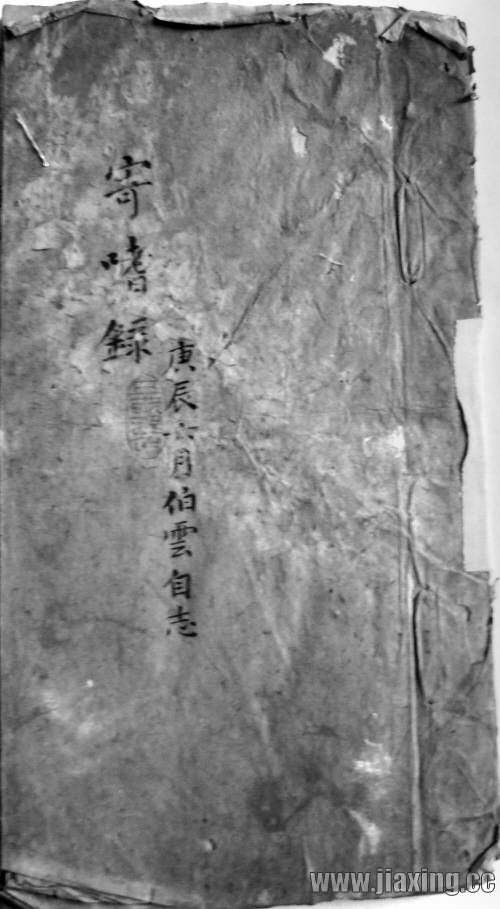 寄嗜錄
庚辰六月伯雲自志
www.jiaxing.cc